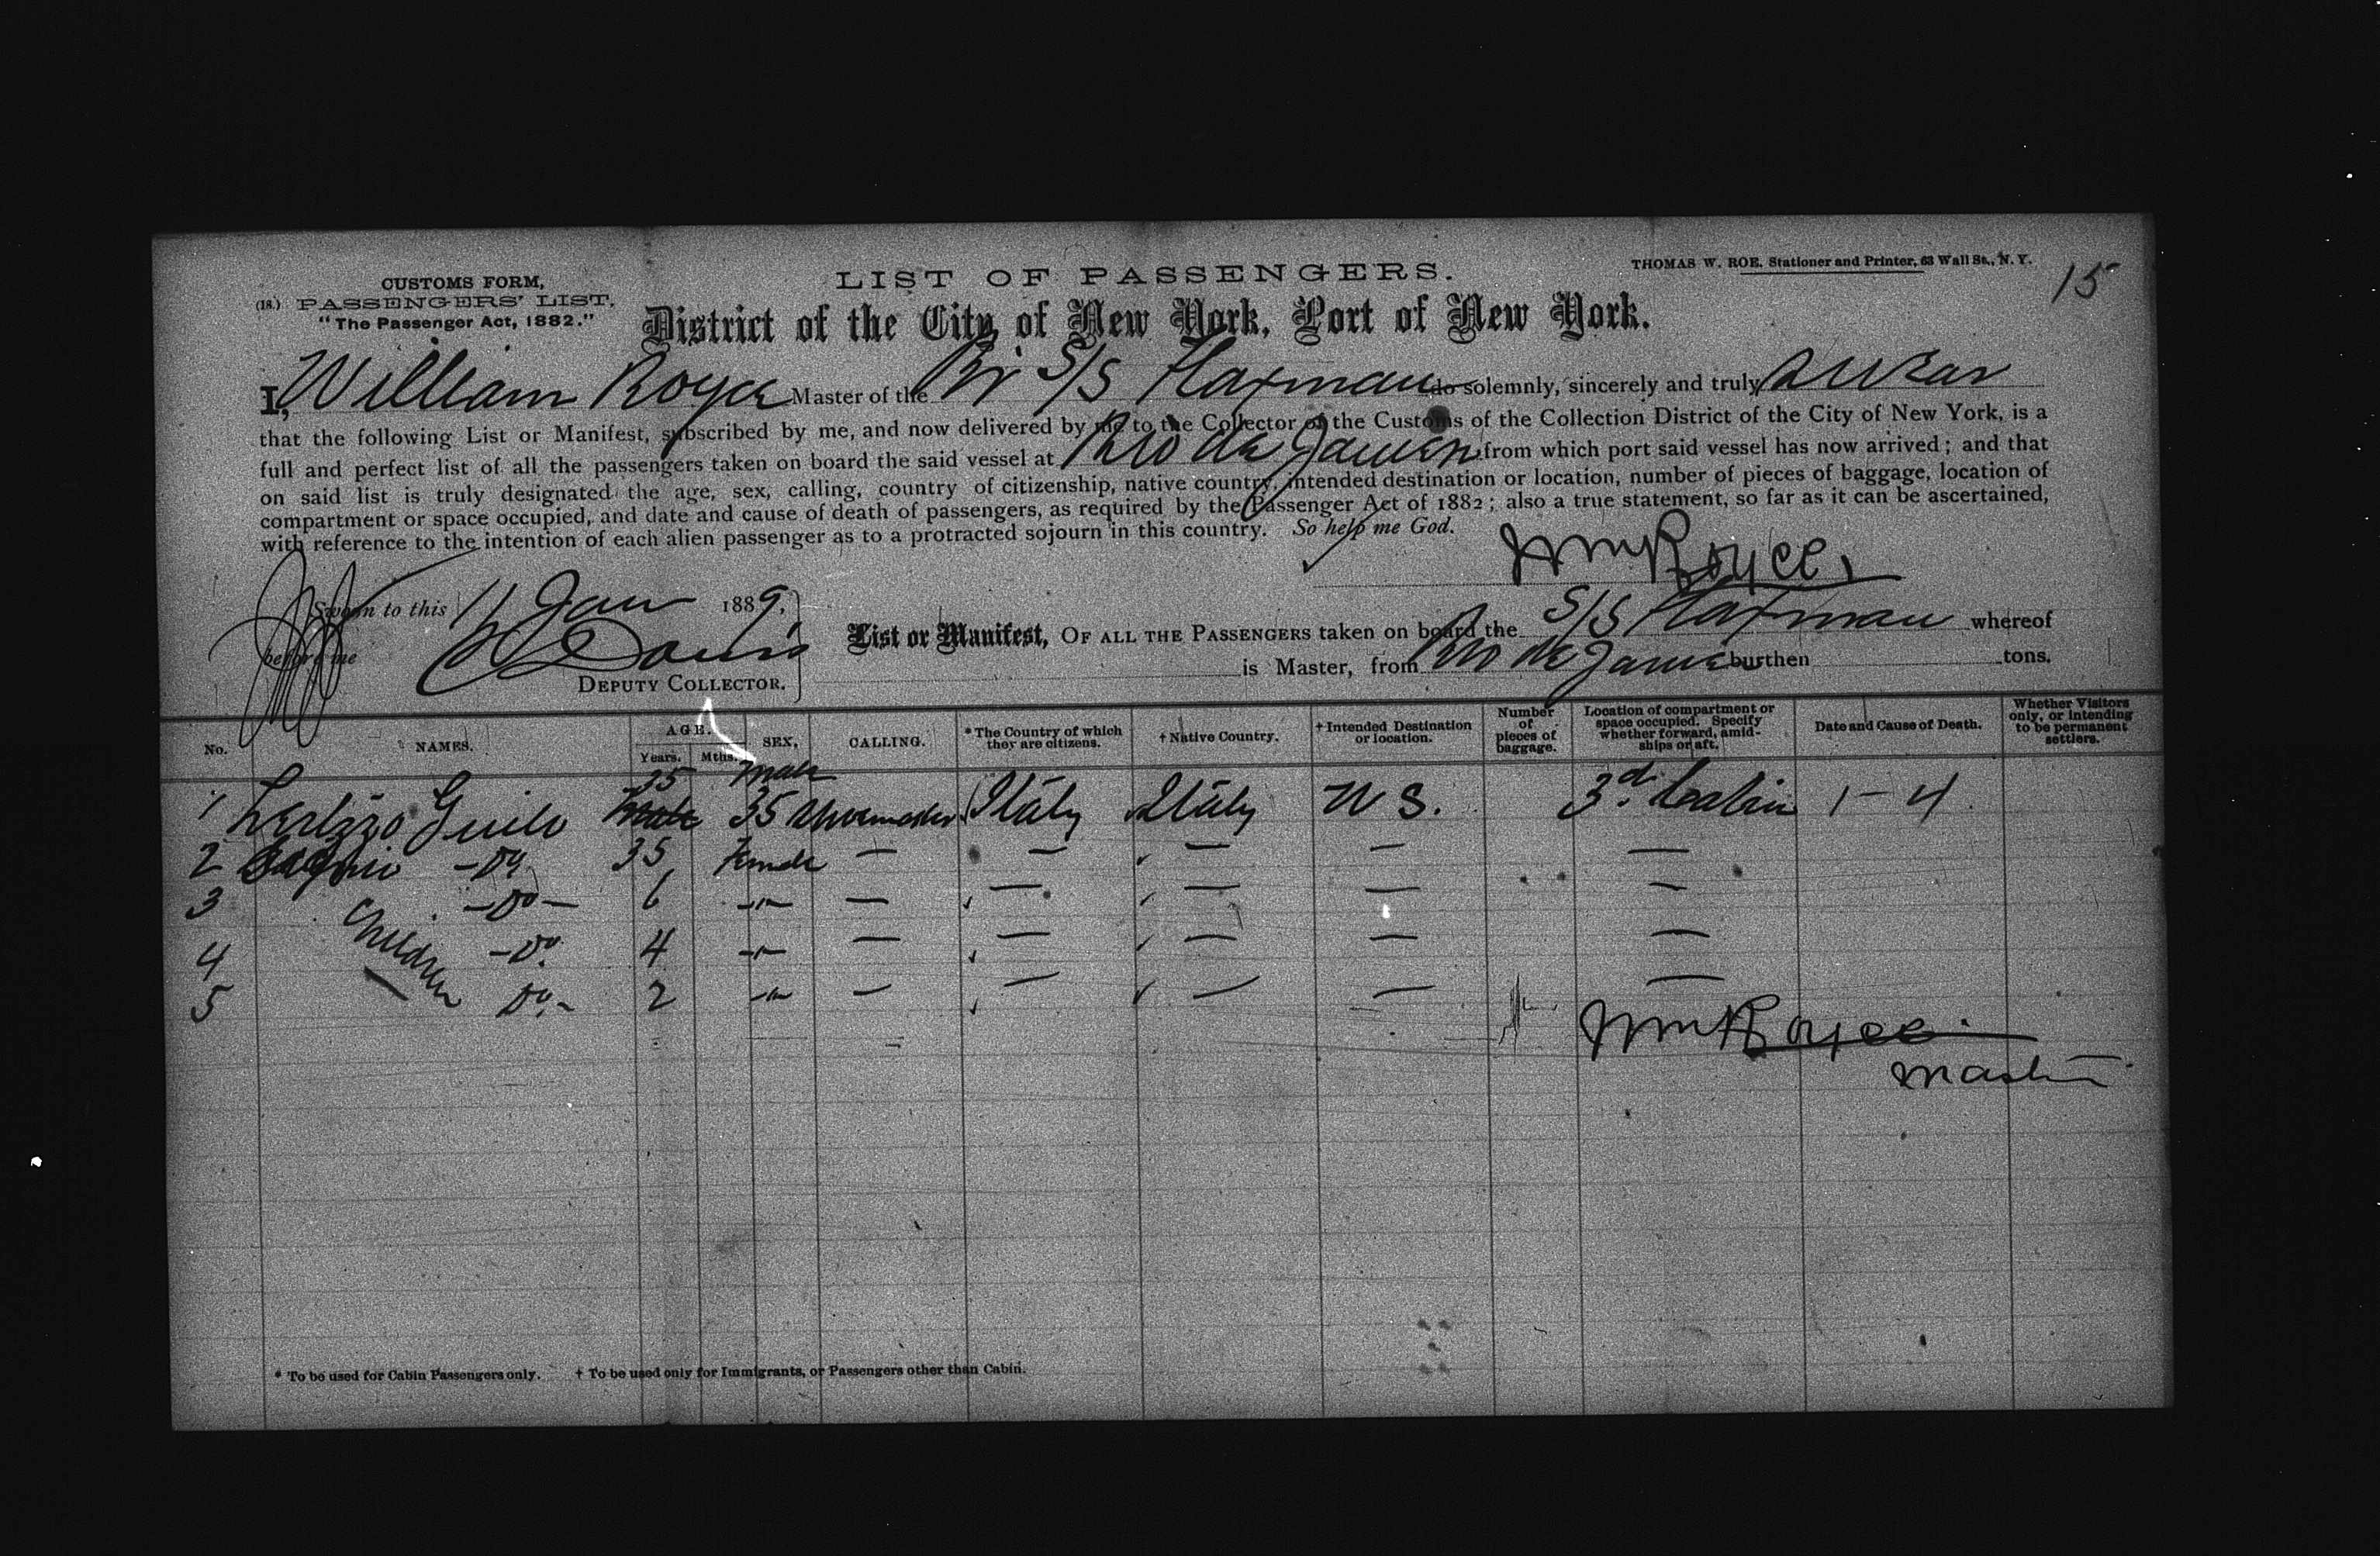 CUSTOMS FORM,
(18.) PASSENGERS' LIST,
"The Passenger Act, 1882."
LIST OF PASSENGERS.
THOMAS W. ROE. Stationer and Printer, 63 Wall St., N. Y.
15
District of the City of New York, Port of New York.
I, William Royce Master of the Br S/S Flaxman do solemnly, sincerely and truly swear
that the following List or Manifest, subscribed by me, and now delivered by me to the Collector of the Customs of the Collection District of the City of New York, is a
full and perfect list of all the passengers taken on board the said vessel at Rio de Janeiro from which port said vessel has now arrived; and that
on said list is truly designated the age, sex, calling, country of citizenship, native country, intended destination or location, number of pieces of baggage, location of
compartment or space occupied, and date and cause of death of passengers, as required by the Passenger Act of 1882; also a true statement, so far as it can be ascertained,
with reference to the intention of each alien passenger as to a protracted sojourn in this country. So help me God.
Wm Royce
Sworn to this 11 Jan 1889,
before me
DEPUTY COLLECTOR.
List or Manifest, OF ALL THE PASSENGERS taken on board the S/S Flaxman whereof
is Master, from Rio de Janeiro burthen tons.
No. NAMES. AGE. Years. Mths. SEX, CALLING. * The Country of which they are citizens. † Native Country. † Intended Destination or location. Number of pieces of baggage. Location of compartment or space occupied. Specify whether forward, amidships or aft. Date and Cause of Death. Whether Visitors only, or intending to be permanent settlers.
1 35 Male 35 Shoemaker Italy Italy U S. 3d. Cabin 1 - 4
2 - Do 35 Female — — — — —
3 - Do - 6 -"- — — — — —
4 Children - Do. 4 -"- — — — — —
5 Do. - 2 -"- — — — — —
Wm Royce
Master
* To be used for Cabin Passengers only. † To be used only for Immigrants, or Passengers other than Cabin.